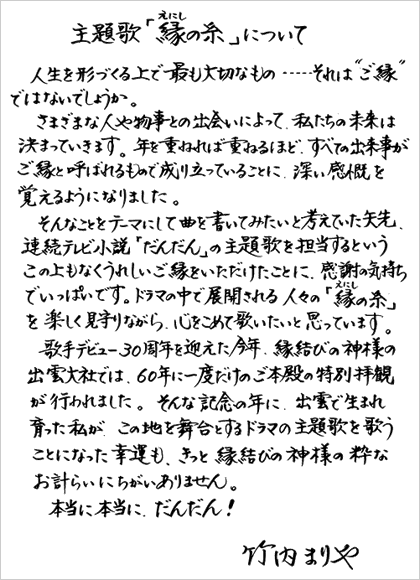 主題歌「縁の糸」について
えにし
人生を形づくる上で最も大切なもの……それは"ご縁"
ではないでしょうか。
さまざまな人や物事との出会いによって、私たちの未来は
決まっていきます。年を重ねれば重ねるほど、すべての出来事が
ご縁と呼ばれるもので成り立っていることに、深い感慨を
覚えるようになりました。
そんなことをテーマにして曲を書いてみたいと考えていた矢先、
連続テレビ小説「だんだん」の主題歌を担当するという
この上もなくうれしいご縁をいただけたことに、感謝の気持ち
でいっぱいです。ドラマの中で展開される人々の「縁の糸」
えにし
を楽しく見守りながら、心をこめて歌いたいと思っています。
歌手デビュー30周年を迎えた今年、縁結びの神様の
出雲大社では、60年に一度だけのご本殿の特別拝観
が行われました。そんな記念の年に、出雲で生まれ
育った私が、この地を舞台とするドラマの主題歌を歌う
ことになった幸運も、きっと縁結びの神様の粋な
お計らいにちがいありません。
本当に本当に、だんだん!
竹内まりや